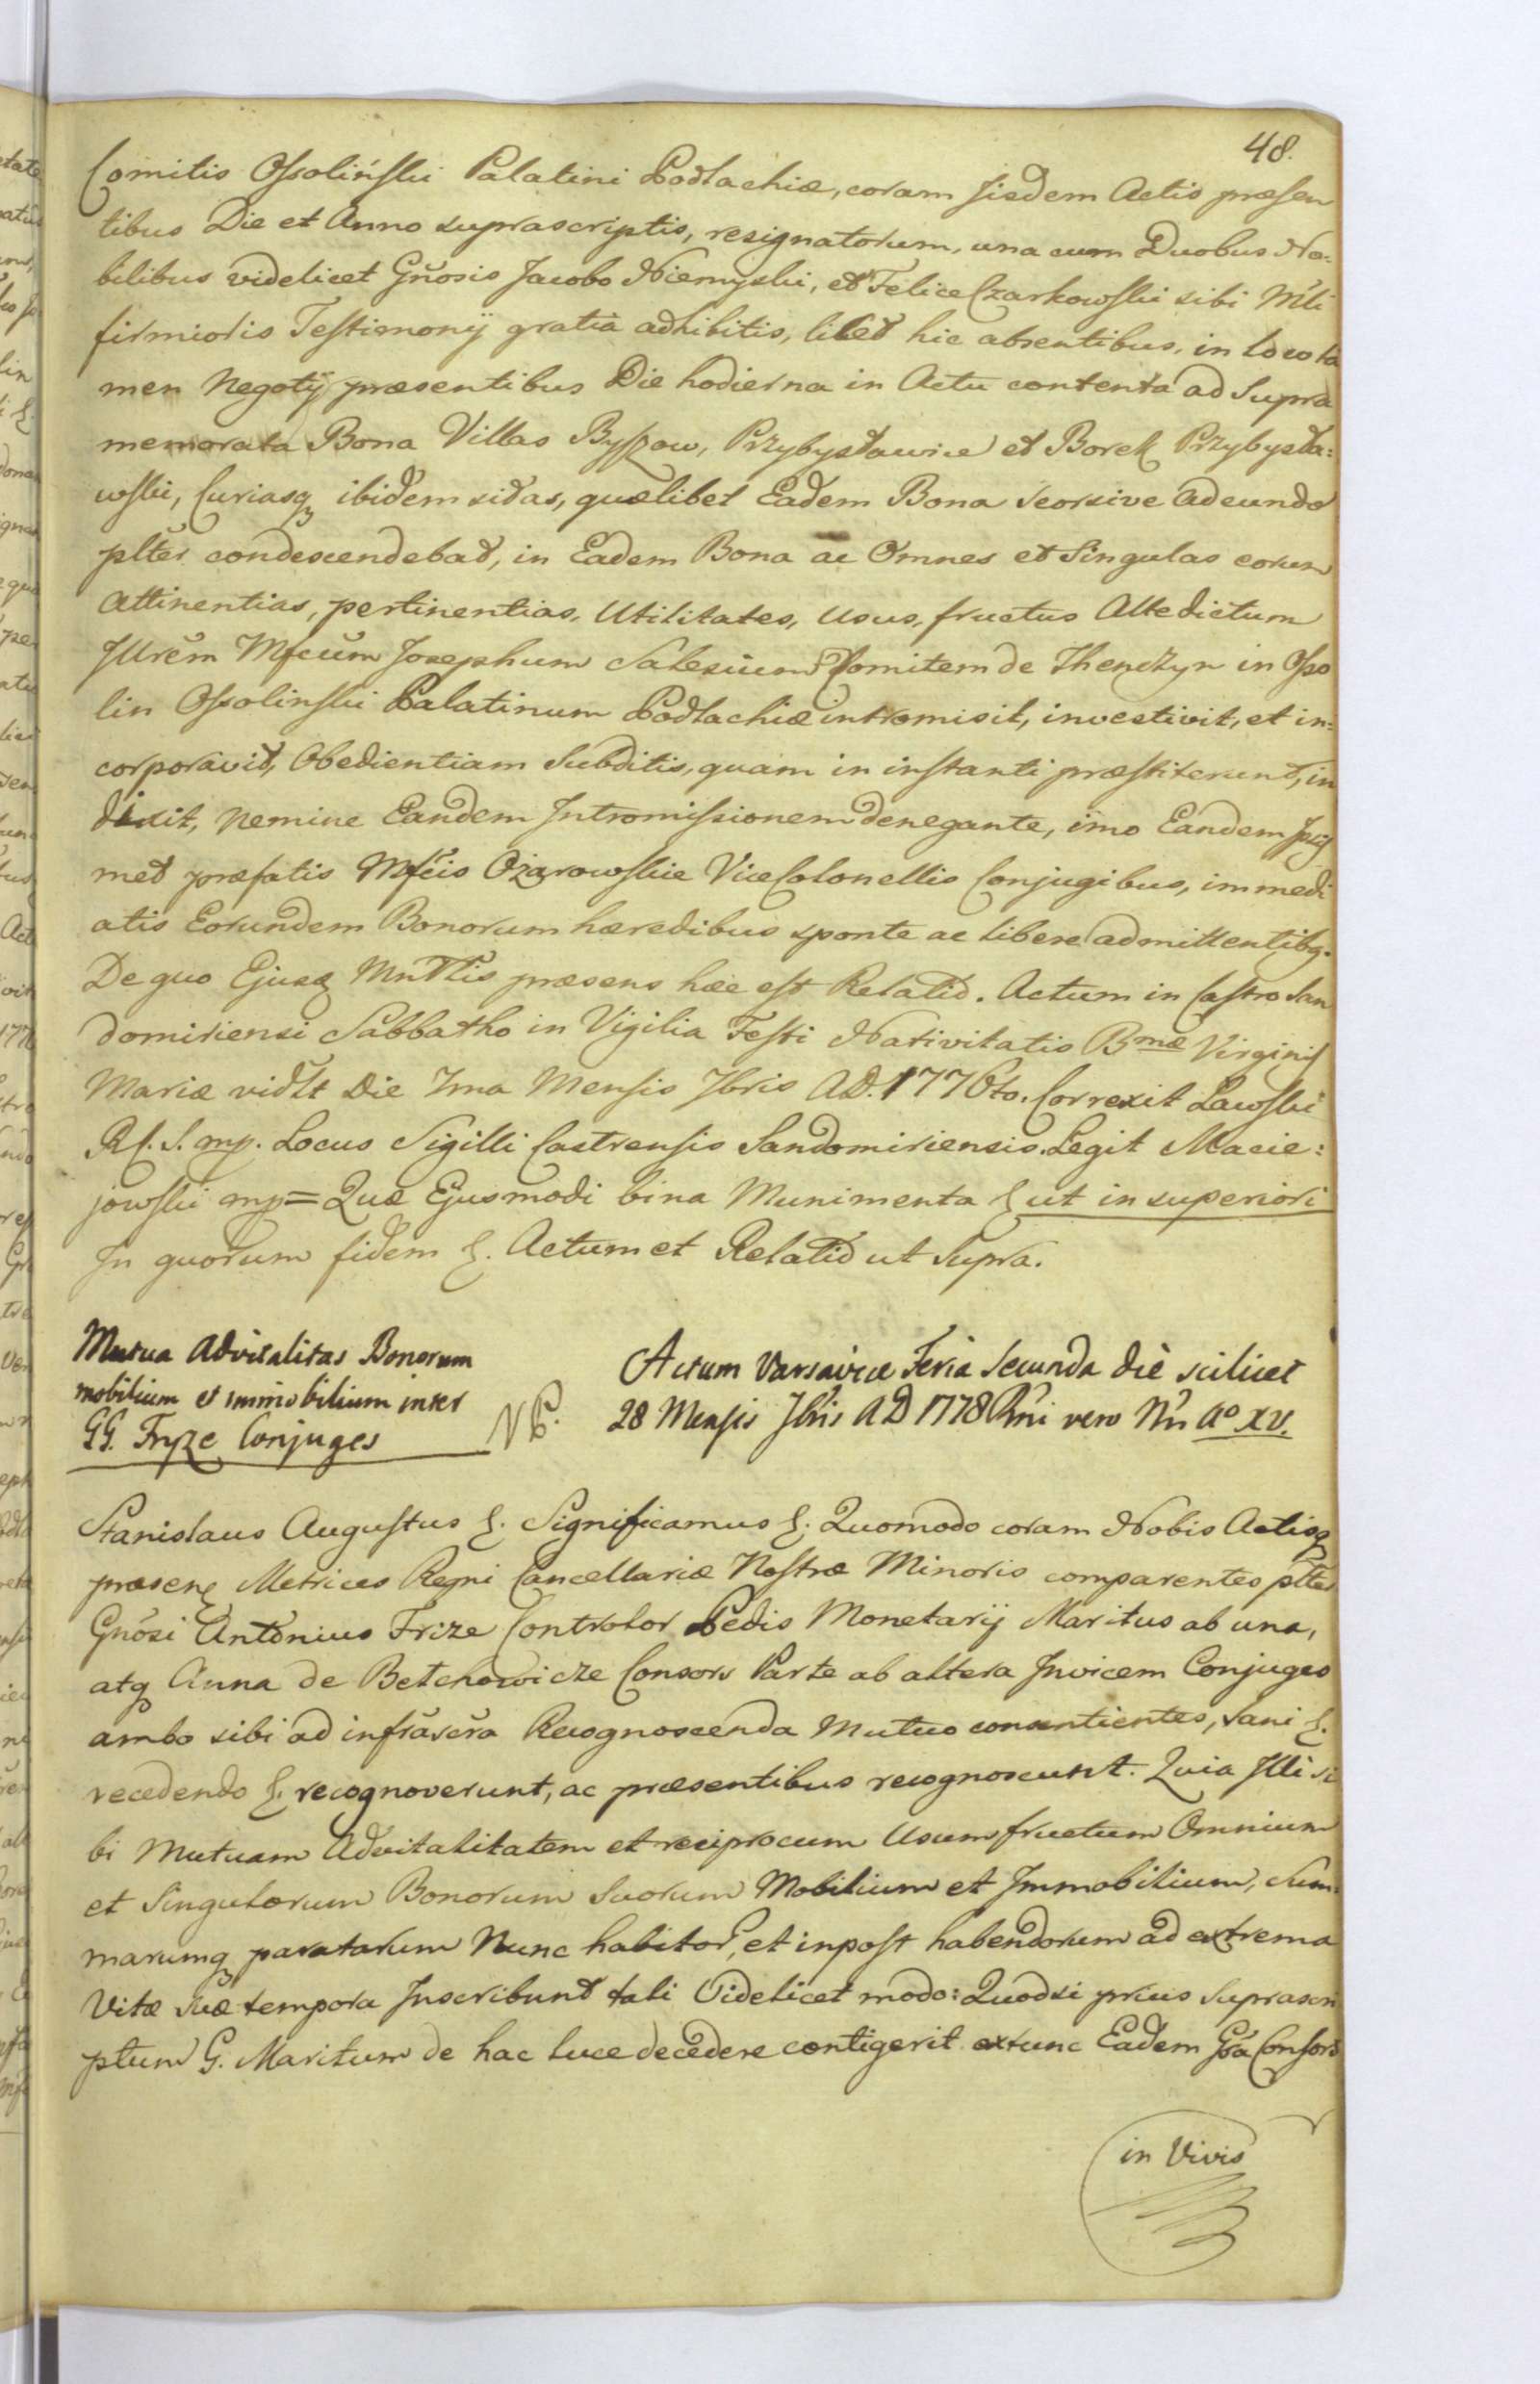 48.
Comitis Ossolińskii Palatini Podlachiæ, coram Jisdem Actis præsen
tibus Die et Anno suprascriptis, resignatorum, una cum Duobus No=
bilibus videlicet Gñosis Jacobo Niemyski, et Felice Czarkowski sibi Mli
firmioris Testimonij gratia adhibitis, licet hic absentibus, in loco ta
men Negotij præsentibus Die hodierna in Actu contenta ad Supra
memorata Bona Villas Byszow, Przybysławice et Borek Przybysła=
wski, Curiasq ibidem sitas, quælibet Eadem Bona seorsive adeundo
plter condescendebat, in Eadem Bona ac Omnes et Singulas eorum
Attinentias, pertinentias, Utilitates, Usus, fructus Altedictum
Jllrem Mfcum Josephum Salesium Comitem de Thenczyn in Osso
lin Ossolinski Palatinum Podlachiæ intromisit, investivit, et in=
corporavit, Obedientiam Subditis, quam in instanti præstiterunt, in
dixit, Nemine Eandem Intromissionem denegante, imo Eandem Jpsis
met præfatis Mfcis Ożarowskie ViceColonellis Conjugibus, immedi
atis Eorundem Bonorum hæredibus sponte ac libere admittentibq.
De quo Ejusq Mnttis præsens hæc est Relatio. Actum in Castro San
domiriensi Sabbatho in Vigilia Festi Nativitatis Bmæ Virginis
Mariæ vidlt Die 7ma Mensis 7bris A.D. 1776to. Correxit Lawski
R.C.S. mp. Locus Sigilli Castrensis Sandomiriensis. Legit Macie=
jowski mp = Quæ Ejusmodi bina Munimenta & ut in superiori
In quorum fidem &. Actum et Relatio ut Supra.
Mutua Advitalitas Bonorum
mobilium et immobilium inter
GG. Fryze Conjuges
Actum Varsaviæ Feria Secunda die scilicet
28 Mensis 7bris A D 1778 Rni vero Nri Ao XV.
Stanislaus Augustus &. Significamus &. Quomodo coram Nobis Actisq
præsen Metrices Regni Cancellariæ Nostræ Minoris comparentes plter
Gñosi Antonius Frize Controlor Pedis Monetarij Maritus ab una,
atq Anna de Betchowicze Consors Parte ab altera Invicem Conjuges
ambo sibi ad infrascra Recognoscenda Mutuo consentientes, sani &.
recedendo &. recognoverunt, ac præsentibus recognoscunt. Quia Jlli si
bi Mutuam Advitalitatem et reciprocum Usumfructum Omnium
et Singulorum Bonorum Suorum Mobilium et Immobilium, Sum=
marumq paratarum Nunc habitor, et inpost habendorum ad extrema
Vitæ suæ tempora Inscribunt tali Videlicet modo: Quodsi prius Suprascri
ptum G. Maritum de hac luce decedere contigerit extunc Eadem Gsa Consors
in Vivis